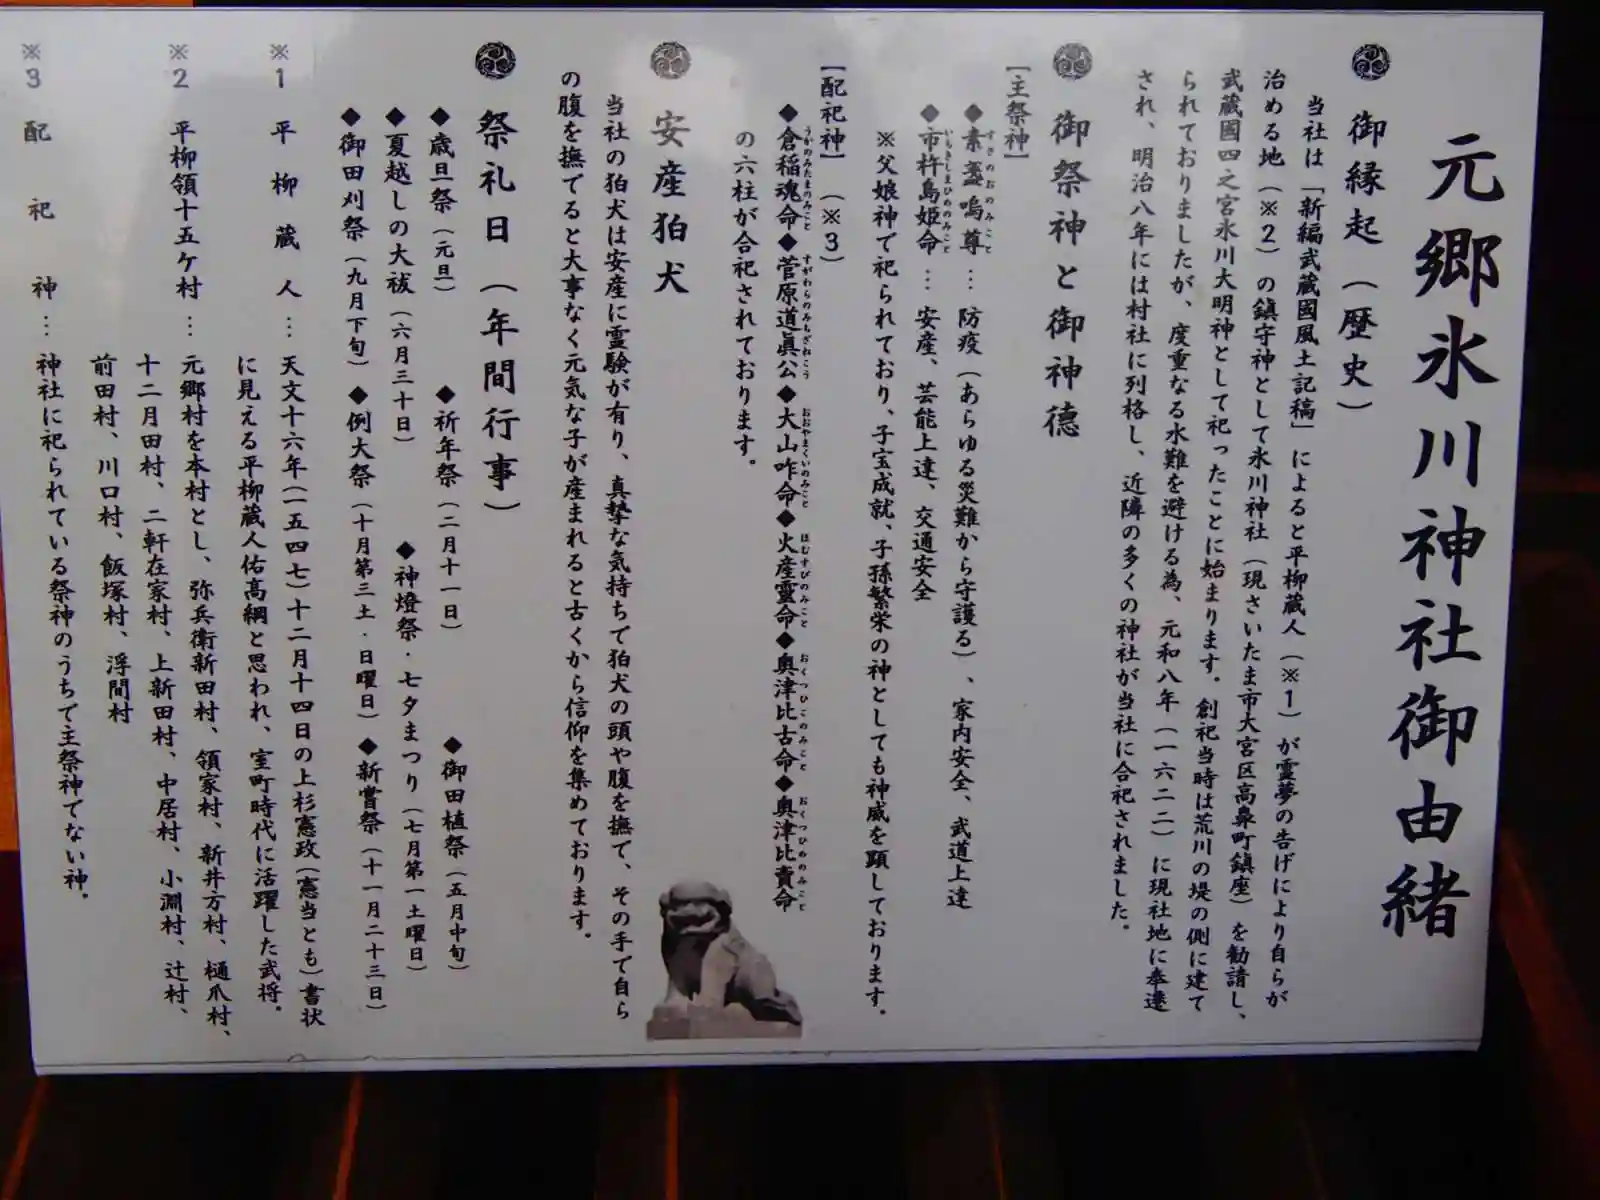 元郷氷川神社御由緒
御縁起（歴史）
当社は「新編武蔵國風土記稿」によると平柳蔵人（※1）が霊夢の告げにより自らが
治める地（※2）の鎮守神として氷川神社（現さいたま市大宮区高鼻町鎮座）を勧請し、
武蔵國四之宮氷川大明神として祀ったことに始まります。創祀当時は荒川の堤の側に建て
られておりましたが、度重なる水難を避ける為、元和八年（一六二二）に現社地に奉遷
され、明治八年には村社に列格し、近隣の多くの神社が当社に合祀されました。
御祭神と御神徳
【主祭神】
◆素盞嗚尊… 防疫（あらゆる災難から守護る）、家内安全、武道上達
すさのおのみこと
◆市杵島姫命… 安産、芸能上達、交通安全
いちきしまひめのみこと
※父娘神で祀られており、子宝成就、子孫繁栄の神としても神威を顕しております。
【配祀神】（※3）
◆倉稲魂命◆菅原道眞公◆大山咋命◆火産靈命◆奥津比古命◆奥津比賣命
うかのみたまのみこと すがわらのみちざねこう おおやまくいのみこと ほむすびのみこと おくつひこのみこと おくつひめのみこと
の六柱が合祀されております。
安産狛犬
当社の狛犬は安産に霊験が有り、真摯な気持ちで狛犬の頭や腹を撫て、その手で自ら
の腹を撫でると大事なく元気な子が産まれると古くから信仰を集めております。
祭礼日（年間行事）
◆歳旦祭（元旦） ◆祈年祭（二月十一日） ◆御田植祭（五月中旬）
◆夏越しの大祓（六月三十日） ◆神燈祭・七夕まつり（七月第一土曜日）
◆御田刈祭（九月下旬） ◆例大祭（十月第三土・日曜日） ◆新嘗祭（十一月二十三日）
※1 平柳蔵人… 天文十六年(一五四七)十二月十四日の上杉憲政(憲当とも)書状
に見える平柳蔵人佑高綱と思われ、室町時代に活躍した武将。
※2 平柳領十五ケ村… 元郷村を本村とし、弥兵衛新田村、領家村、新井方村、樋爪村、
十二月田村、二軒在家村、上新田村、中居村、小淵村、辻村、
前田村、川口村、飯塚村、浮間村
※3 配祀神… 神社に祀られている祭神のうちで主祭神でない神。